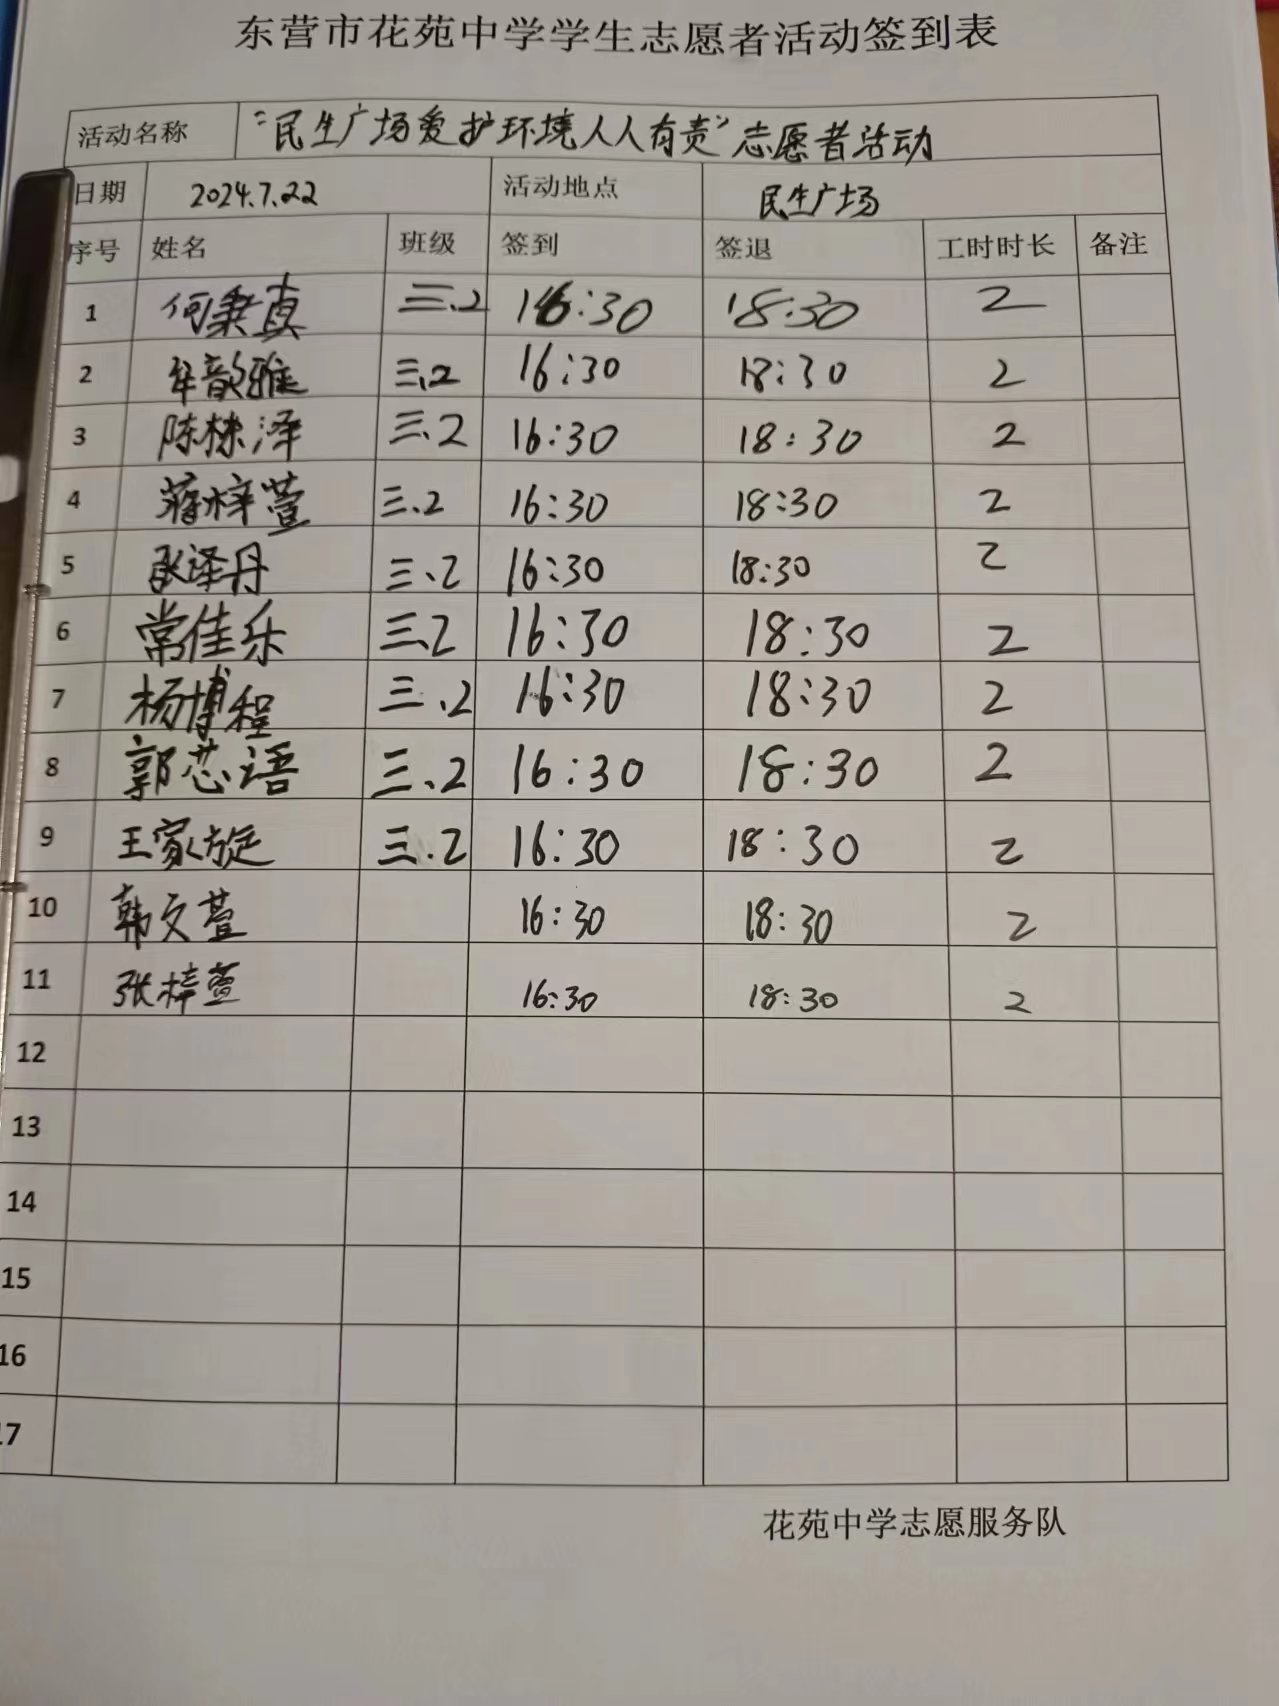 东营市花苑中学学生志愿者活动签到表
活动名称 “民生广场爱护环境人人有责”志愿者活动
日期 2024.7.22 活动地点 民生广场
序号 姓名 班级 签到 签退 工时时长 备注
1 何秉真 三.2 16:30 18:30 2
2 牟歆雅 三.2 16:30 18:30 2
3 陈栋泽 三.2 16:30 18:30 2
4 蒋梓萱 三.2 16:30 18:30 2
5 泽丹 三.2 16:30 18:30 2
6 常佳乐 三.2 16:30 18:30 2
7 杨博程 三.2 16:30 18:30 2
8 郭芯语 三.2 16:30 18:30 2
9 王家旋 三.2 16:30 18:30 2
10 韩文萱 16:30 18:30 2
11 张梓萱 16:30 18:30 2
12
13
14
15
16
17
花苑中学志愿服务队